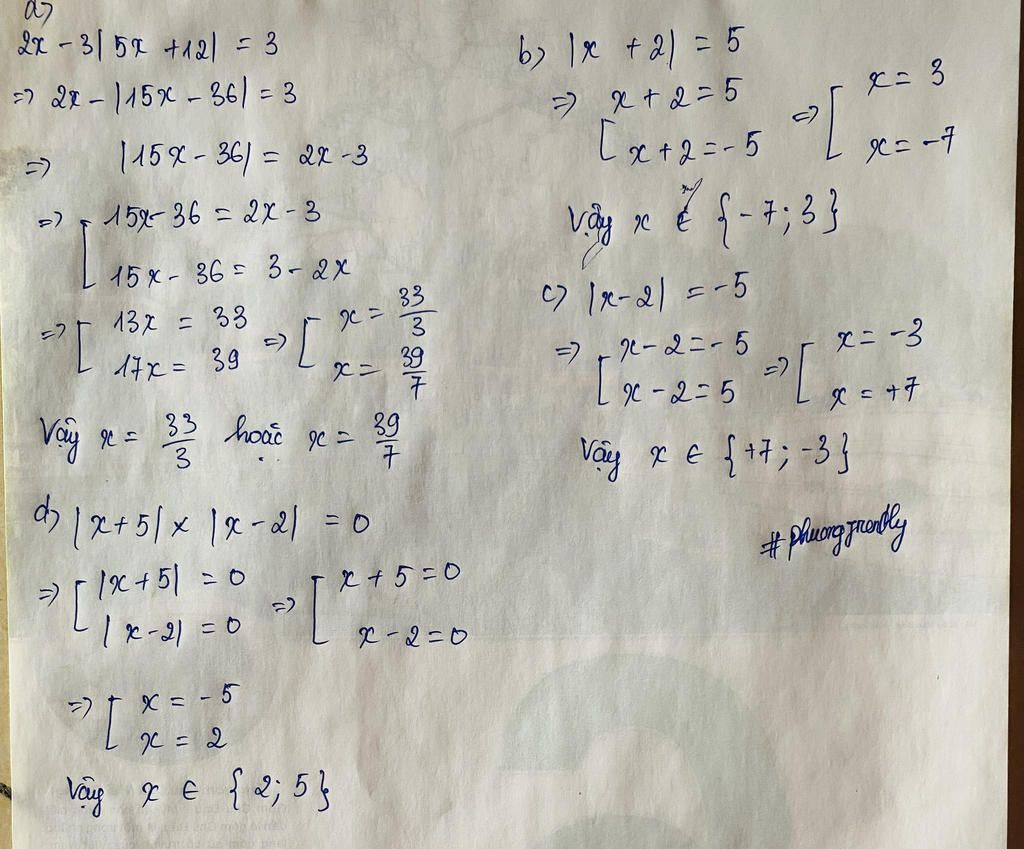 a)
2x - 3|5x + 12| = 3
=> 2x - |15x - 36| = 3
=> |15x - 36| = 2x - 3
=> [ 15x - 36 = 2x - 3
15x - 36 = 3 - 2x
=> [ 13x = 33 => [ x = 33/3
17x = 39 x = 39/7
Vậy x = 33/3 hoặc x = 39/7
b) |x + 2| = 5
=> [ x + 2 = 5 => [ x = 3
x + 2 = -5 x = -7
Vậy x ∈ {-7; 3}
c) |x - 2| = -5
=> [ x - 2 = -5 => [ x = -3
x - 2 = 5 x = +7
Vậy x ∈ {+7; -3}
d) |x + 5| × |x - 2| = 0
=> [ |x + 5| = 0 => [ x + 5 = 0
|x - 2| = 0 x - 2 = 0
=> [ x = -5
x = 2
Vậy x ∈ {2; 5}